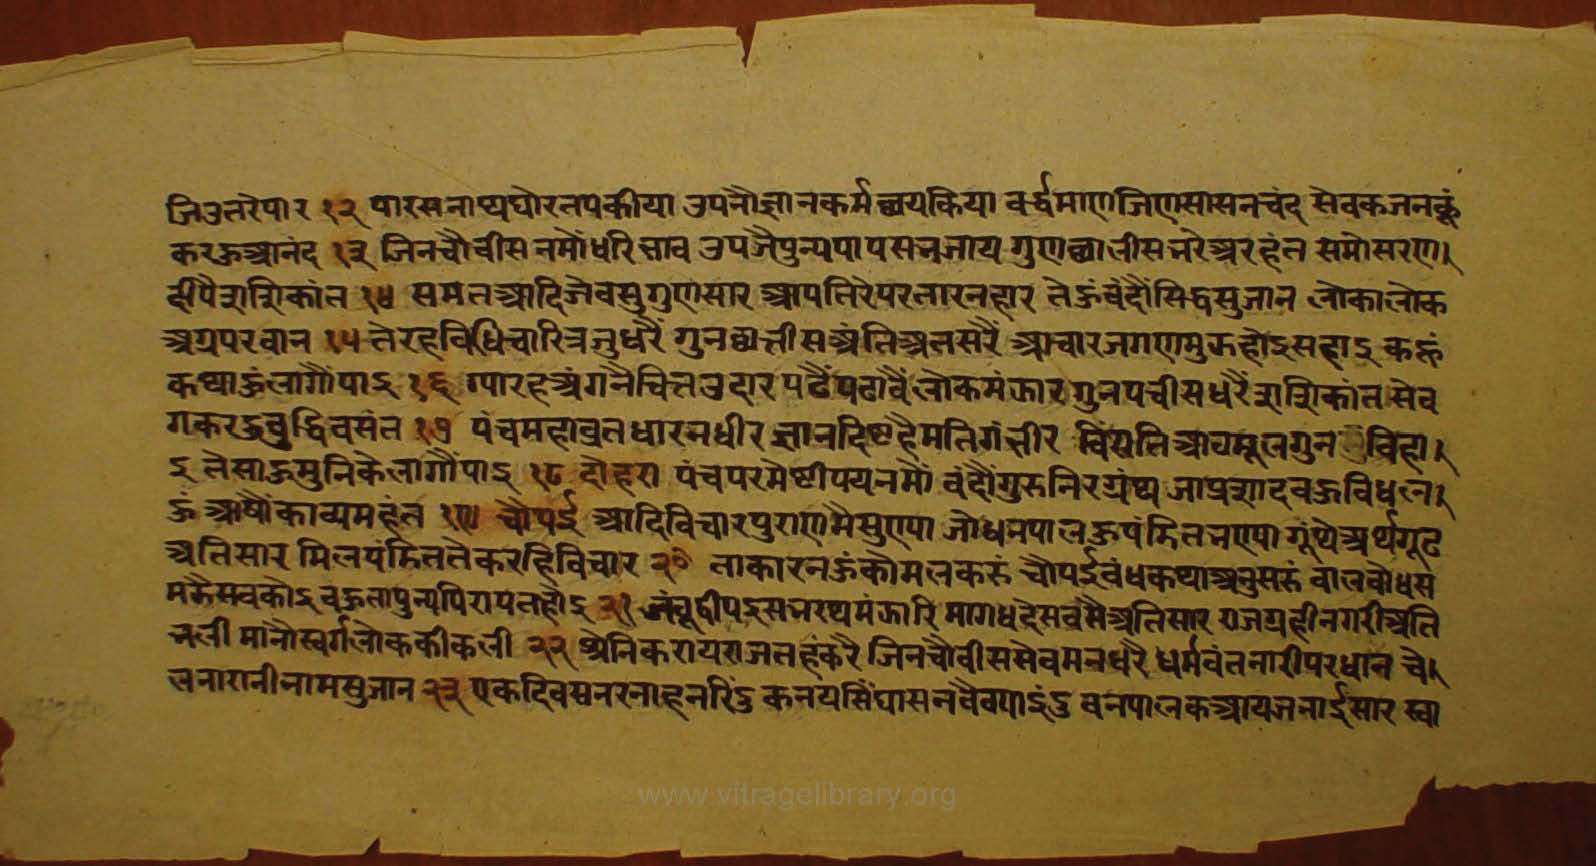 जिउतरैपार १२ पारसनाथघोरतपकीया उपनौज्ञानकर्मछयकिया वर्द्धमाणजिणसासनचंद सेवकजनकूं
करऊआनंद १३ जिनचौवीसनमौंधरिभाव उपजैपुन्यपापसबजाय गुणछालीसभरेअरहंत समोसरण
हीपैराशिकांत १४ समतआदिजेवसुगुणसार आपतिरेपरतारनहार तेऊंवंदौंसिद्धसुजान लोकालोक
अग्रपरवान १५ तेरहविधिचारित्रजुधरैं गुनछत्तीसअंतिअनसरैं आचारजगणमुऊहोइसहाइ कहूं
कथाऊंलागौंपाइ १६ ग्यारहअंगनैचितउदार पढैंपढावैंलोकमंऊार गुनपचीसधरैंराशिकांत सेव
गकरहुबुद्धिवसंत १७ पंचमहाव्रतधारनधीर ज्ञानदिष्टहैमतिगंभीर विंसतिआठमूलगुन विहा
इ तेसाऊमुनिकैलागौंपाइ १८ दोहरा पंचपरमेष्टीपयनमौं वंदौंगुरुनिरग्रंथ जाप्रशादवऊविधलन
ऊं भाषौंकाव्यमहंत १९ चौपई आदिविचारपुराणमैसुण्या जोधनपालऊपंडितभण्या गूंथेअर्थगूढ
अतिसार मिलपंडिततैकरहिविचार २० ताकारनऊंकौमलकरूं चौपईवंधकथाअनुसरूं वालवोधस
मऊैसवकोइ वऊतापुन्यपिरापतहौइ २१ जंबूदीपइसभरथमंऊारि मागधदेसवसैअतिसार राजग्रहीनगरीअति
भली मांनौस्वर्गलोककीकली २२ श्रेनिकरायराजतहंकरै जिनचौवीससेवमनधरै धर्मवंतनारीपरधान चे
लनारानीनामसुजान २३ एकदिवसनरनाहनरिंउ कनयसिंघासनवैवयाइंउ वनपालकआयजनाईसार स्वा
www.vitragelibrary.org